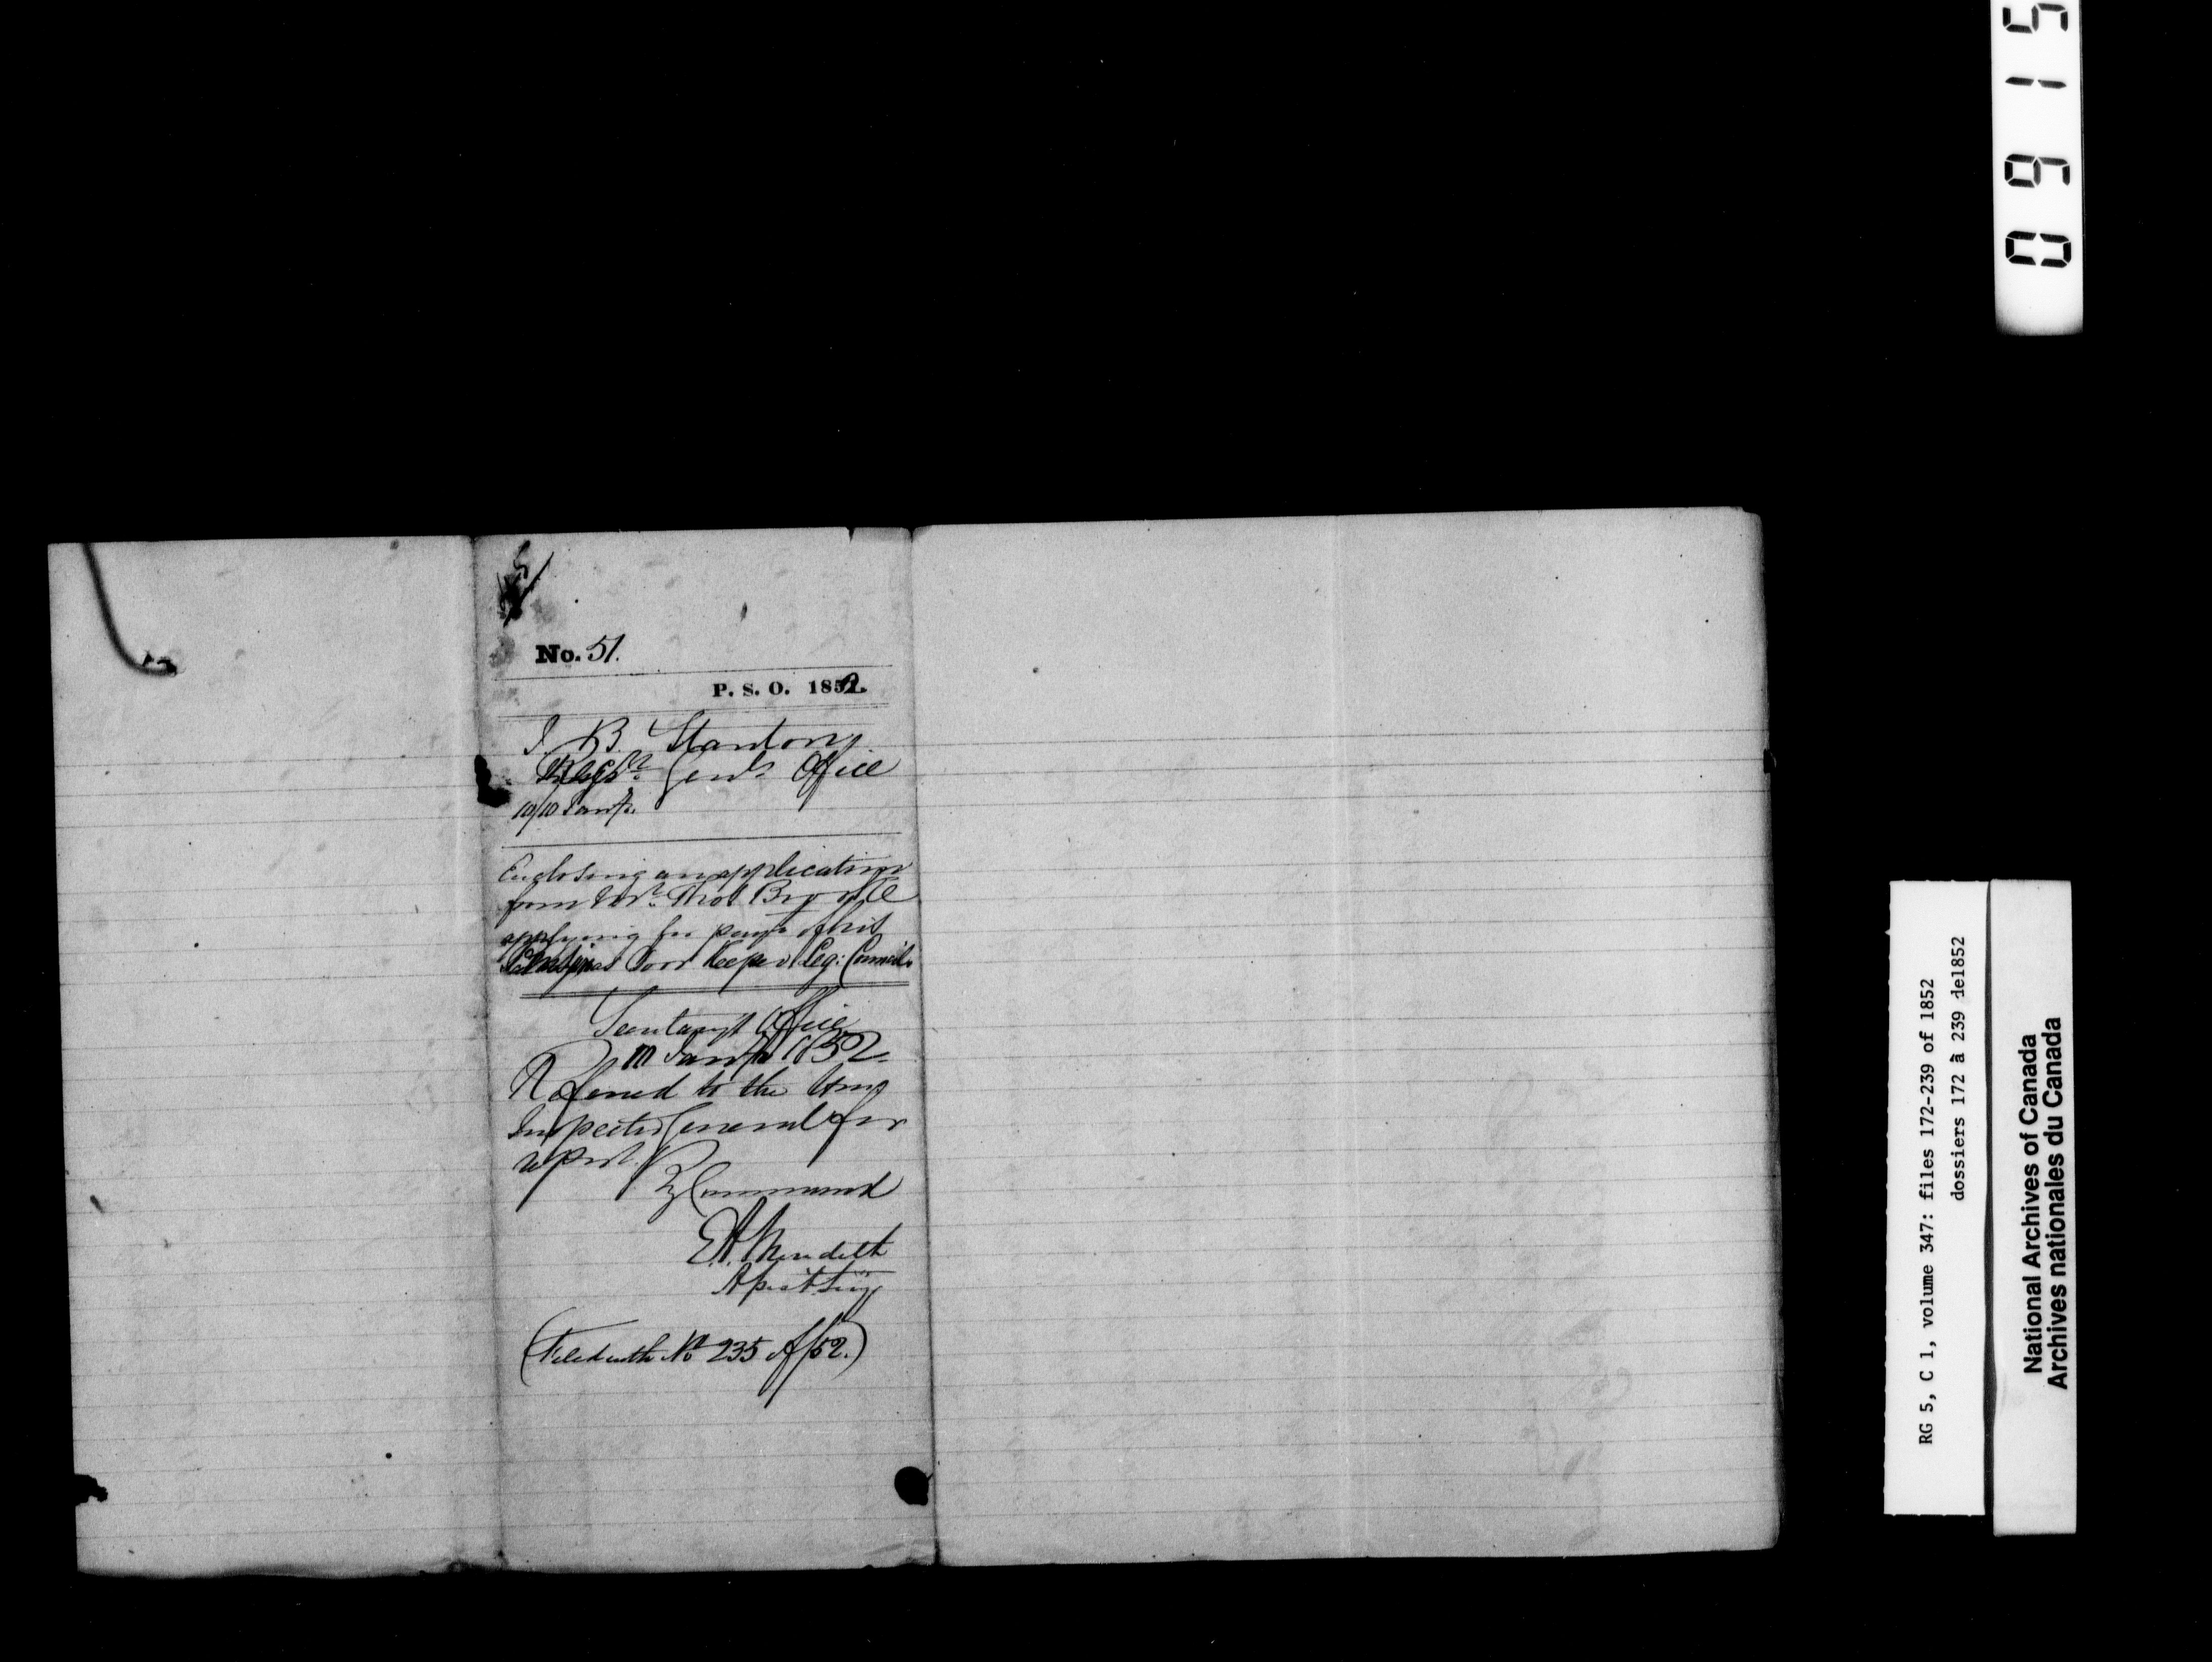 No. 51.
P. S. O. 1852.
J. B. Stanton
Regr. Genls Office
10/10 Jany.
Enclosing an application
from Mr. Thos
applying for payt of his
as Door Keeper Leg: Council.
Secretary's Office
Jany 1852.
Referred to the Hon
Inspector General for
report.
By Command
E. A. Meredith
Asst Secy
(Filed with No 235 of /52.)
0915
RG 5, C 1, volume 347: files 172-239 of 1852
dossiers 172 à 239 de1852
National Archives of Canada
Archives nationales du Canada